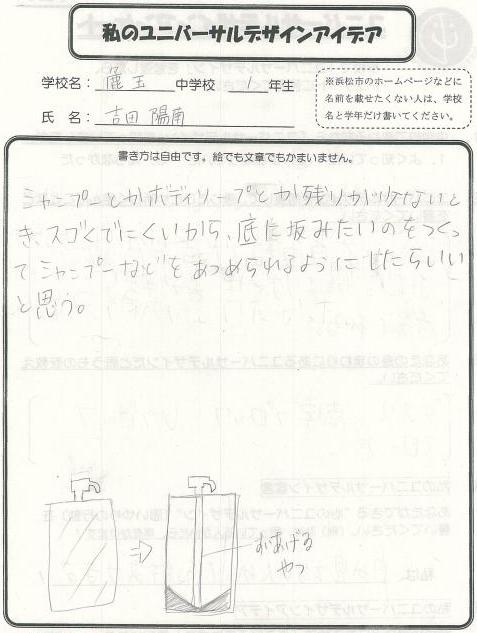 私のユニバーサルデザインアイデア
学校名：麁玉 中学校 1 年生
氏 名：吉田 陽南
※浜松市のホームページなどに
名前を載せたくない人は、学校
名と学年だけ書いてください。
書き方は自由です。絵でも文章でもかまいません。
シャンプーとかボディソープとか残りが少ないと
き、スゴくでにくいから、底に坂みたいのをつくっ
てシャンプーなどをあつめられるようにしたらいい
と思う。
おしあげる
やつ